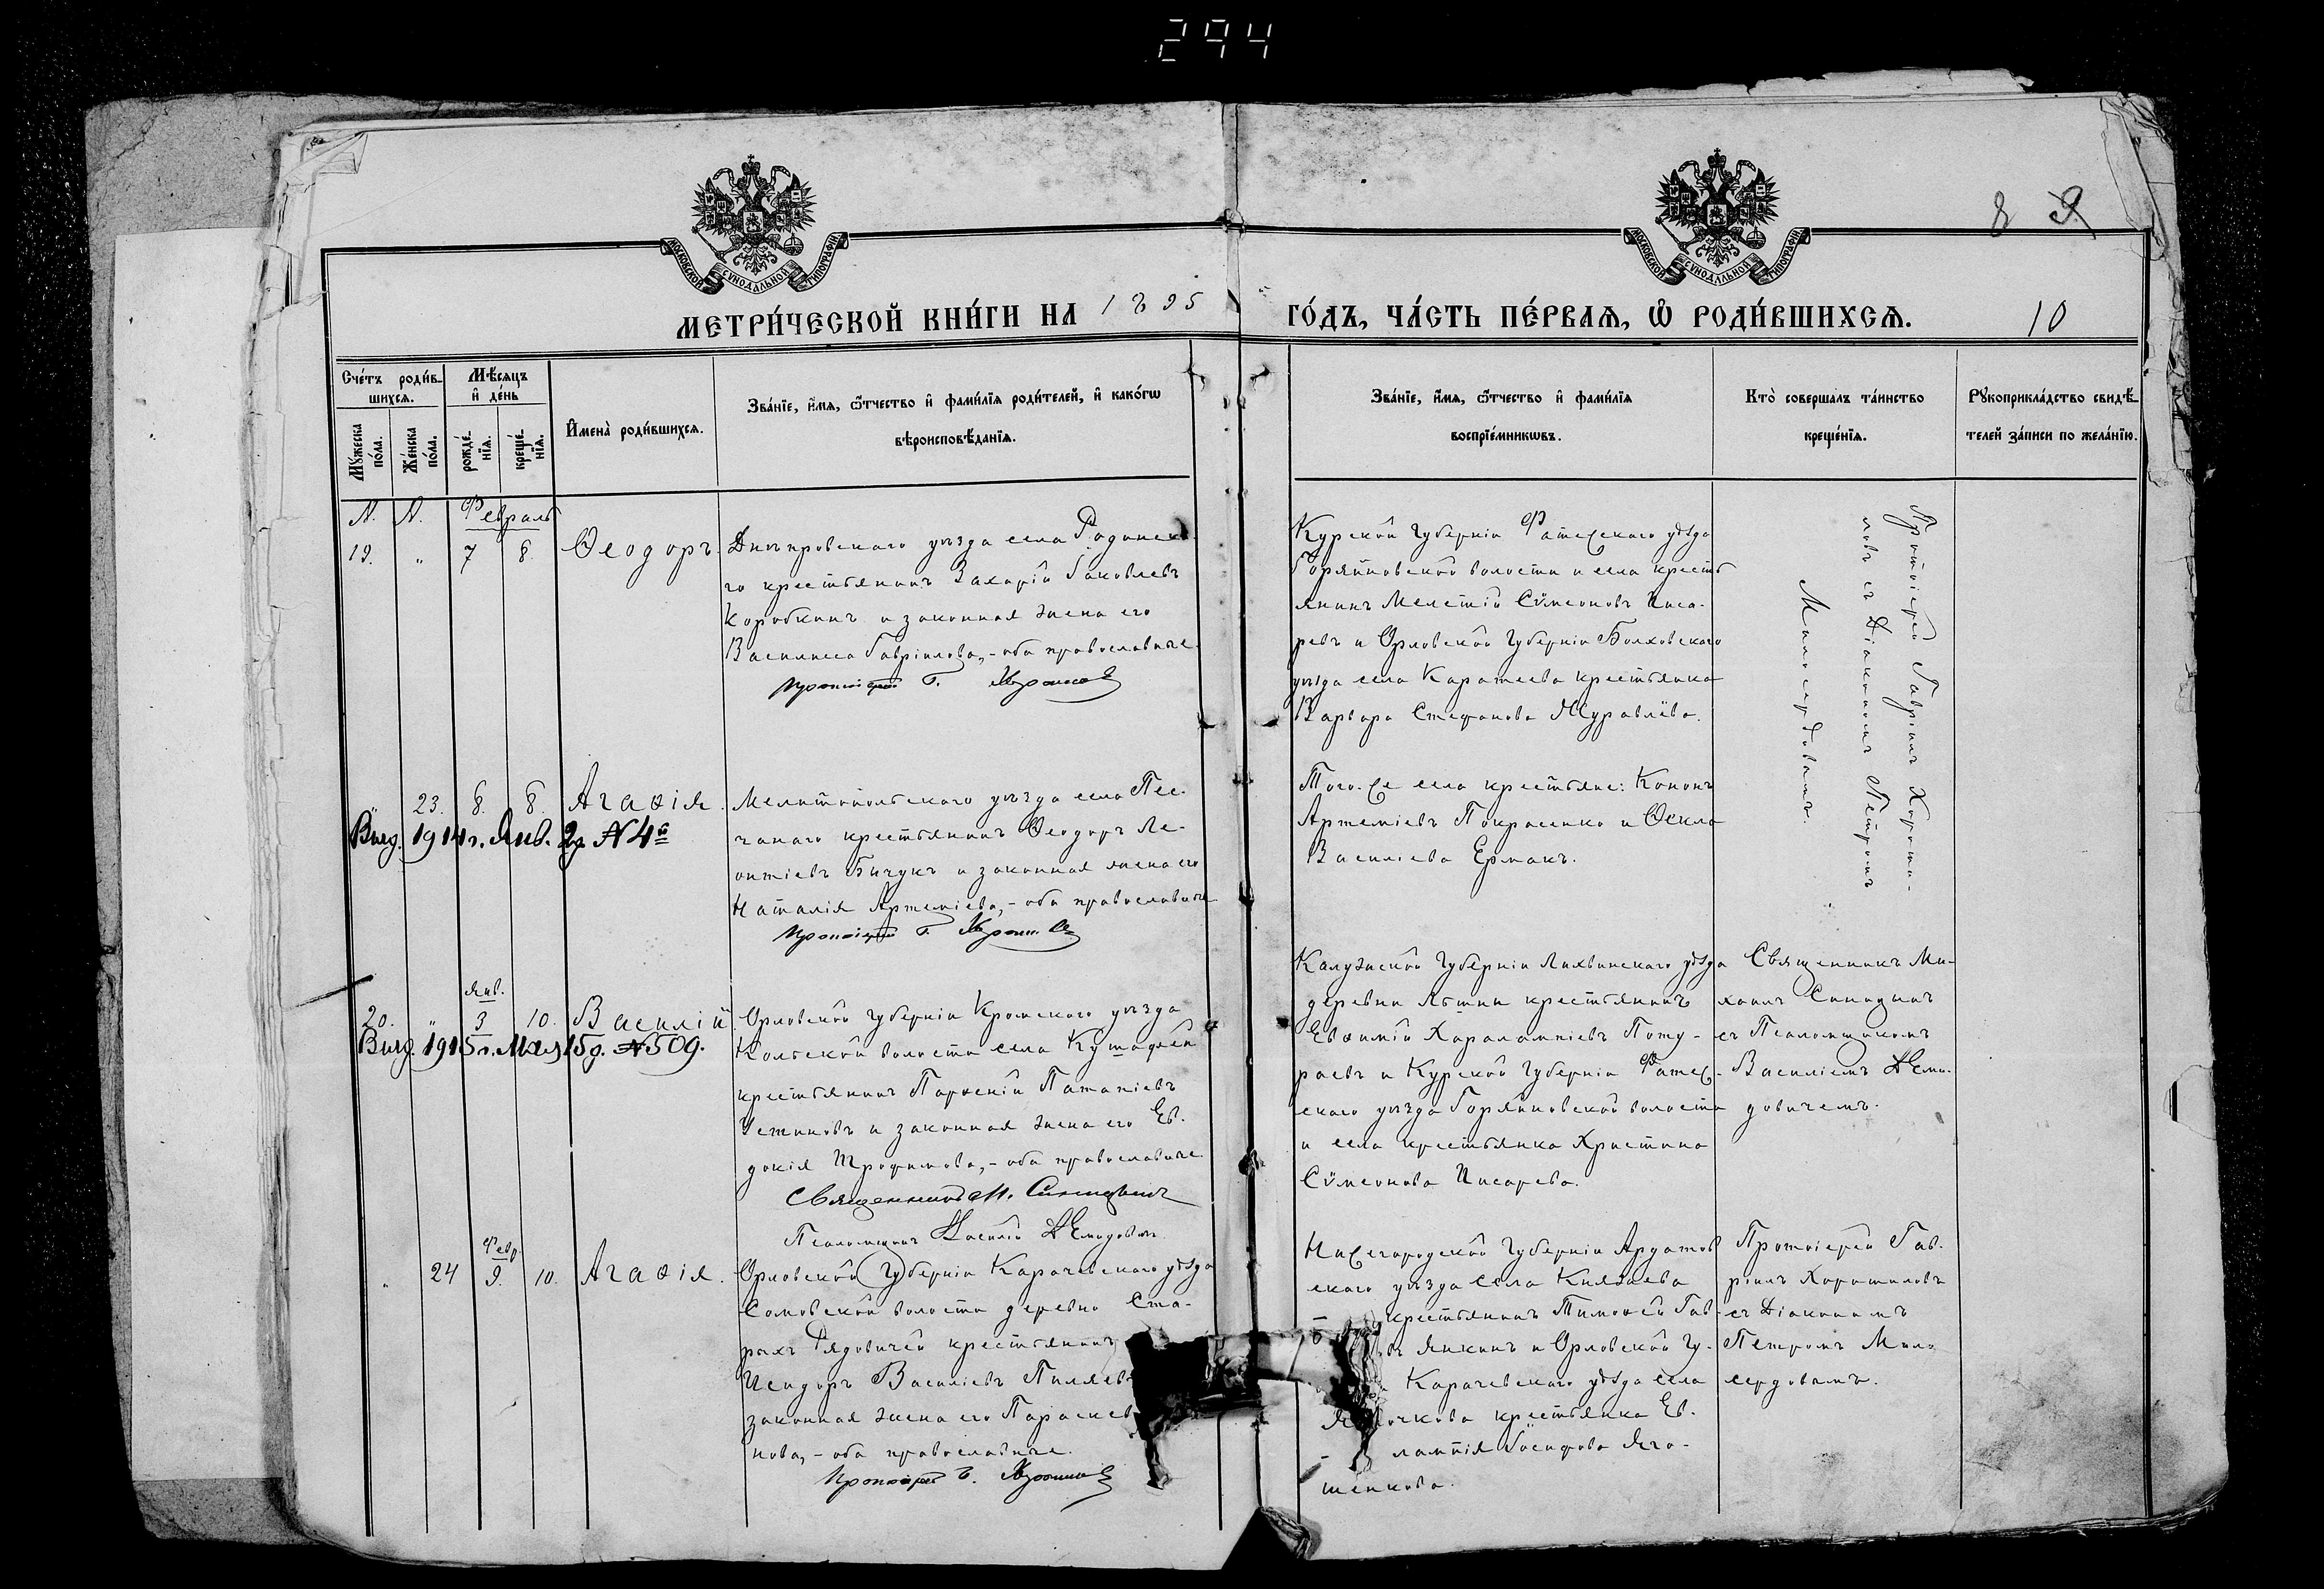 294
МОСКОВСКОЙ СѴНОДАЛЬНОЙ ТИПОГРАФІИ
МОСКОВСКОЙ СѴНОДАЛЬНОЙ ТИПОГРАФІИ
8
МЕТРИ́ЧЕСКОЙ КНИ́ГИ НА 1895
ГО́ДЪ, ЧА́СТЬ ПЕ́РВАѦ, Ѡ РОДИ́ВШИХСѦ.
10
Сче́тъ роди́в-
шихсѧ.
Мѣ́сѧцъ
и҆ де́нь
Мꙋ́жеска
по́ла.
Же́нска
по́ла.
рожде́-
нїѧ.
креще́-
нїѧ.
И҆мена̀ роди́вшихсѧ.
Зва́нїе, и҆́мѧ, ѻ҆́тчество и҆ фами́лїѧ роди́телей, и҆ како́гѡ
вѣроисповѣ́данїѧ.
Зва́нїе, и҆́мѧ, ѻ҆́тчество и҆ фами́лїѧ
воспрїе́мникѡвъ.
Кто̀ совершалъ та́инство
креще́нїѧ.
Рꙋкоприкла́дство свидѣ́-
телей за́писи по жела́нїю.
N. N. Февраль
19. " 7 8. Ѳеодоръ.
Днѣпровскаго уѣзда села
го крестьянинъ Захарій Іаковлевъ
Коробкинъ и законная жена его
Василисса Гавріилова, - оба православные.
Протоіерей Г. Хорошиловъ
Курской Губерніи Фатежскаго уѣзда
Горяиновской волости и села кресть
янинъ Мелетій Сѵмеоновъ Писа-
ревъ и Орловской Губерніи Болховскаго
уѣзда села Каратеева крестьянка
Варвара Стефанова Журавлева.
Протоіерей Гавріилъ Хороши-
ловъ съ Діакономъ Петромъ
Милосердовымъ.
" 23. 8. 8. Агаѳія.
Выд. 1914 г. Янв. 2д. N 4й
Мелитопольскаго уѣзда села Пес-
чанаго крестьянинъ Ѳеодоръ Ле-
онтіевъ Бичукъ и законная жена его
Наталія Артеміева, - оба православные
Протоіерей Г. Хорошиловъ
Того-же села крестьяне: Кононъ
Артеміевъ Покрасенко и Ѳекла
Василіева Ермакъ.
Янв.
20. " 3 10. Василій
Выд. 1915 г. Мая 15д. N 509.
Орловской Губерніи Кромскаго уѣзда
волости села
крестьянинъ Парѳеній Патапіевъ
Устиновъ и законная жена его Ев-
докія Трофимова, - оба православные.
Священникъ М. Синицкій
Псаломщикъ Василій Демидовичъ
Калужской Губерніи Лихвинскаго уѣзда
деревни крестьянинъ
Евѳимій Харалампіевъ
раевъ и Курской Губерніи Фатеж-
скаго уѣзда Горяиновской волости
и села крестьянка Христина
Сѵмеонова Писарева.
Священникъ Ми-
хаилъ
съ Псаломщикомъ
Василіемъ Деми-
довичемъ.
Февр.
" 24 9. 10. Агаѳія.
Орловской Губерніи Карачевскаго уѣзда
Сомовской волости деревни Ста-
рыхъ Рядовичей крестьянинъ
Исидоръ Василіевъ
законная жена его Параскев
нова, - оба православные.
Протоіерей Г. Хорошиловъ
Нижегородской Губерніи Ардатов
скаго уѣзда села Князева
крестьянинъ Тимоѳей Гав-
въ Янкинъ и Орловской Гу-
Карачевскаго уѣзда села
крестьянка Ев-
лампія Іосифова Яго-
шенкова.
Протоіерей Гав-
ріилъ Хорошиловъ
съ Діакономъ
Петромъ Мило
сердовымъ.